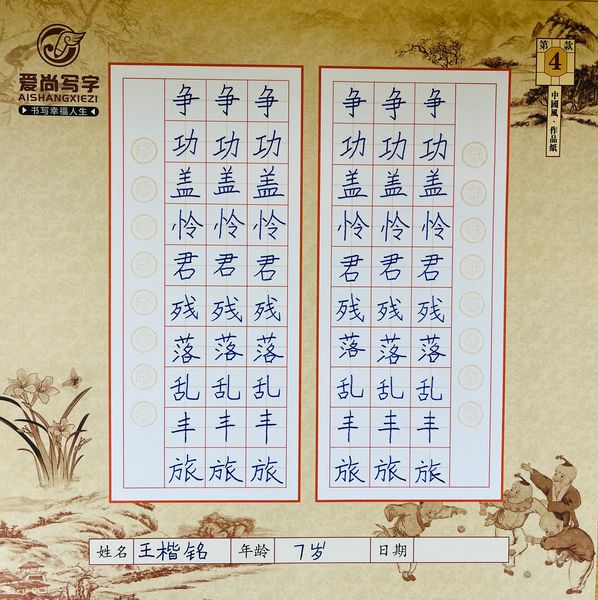 爱尚写字
AISHANGXIEZI
书写幸福人生
第4款
中國風·作品紙
争争争 争争争
功功功 功功功
盖盖盖 盖盖盖
怜怜怜 怜怜怜
君君君 君君君
残残残 残残残
落落落 落落落
乱乱乱 乱乱乱
丰丰丰 丰丰丰
旅旅旅 旅旅旅
姓名 王楷铭 年龄 7岁 日期